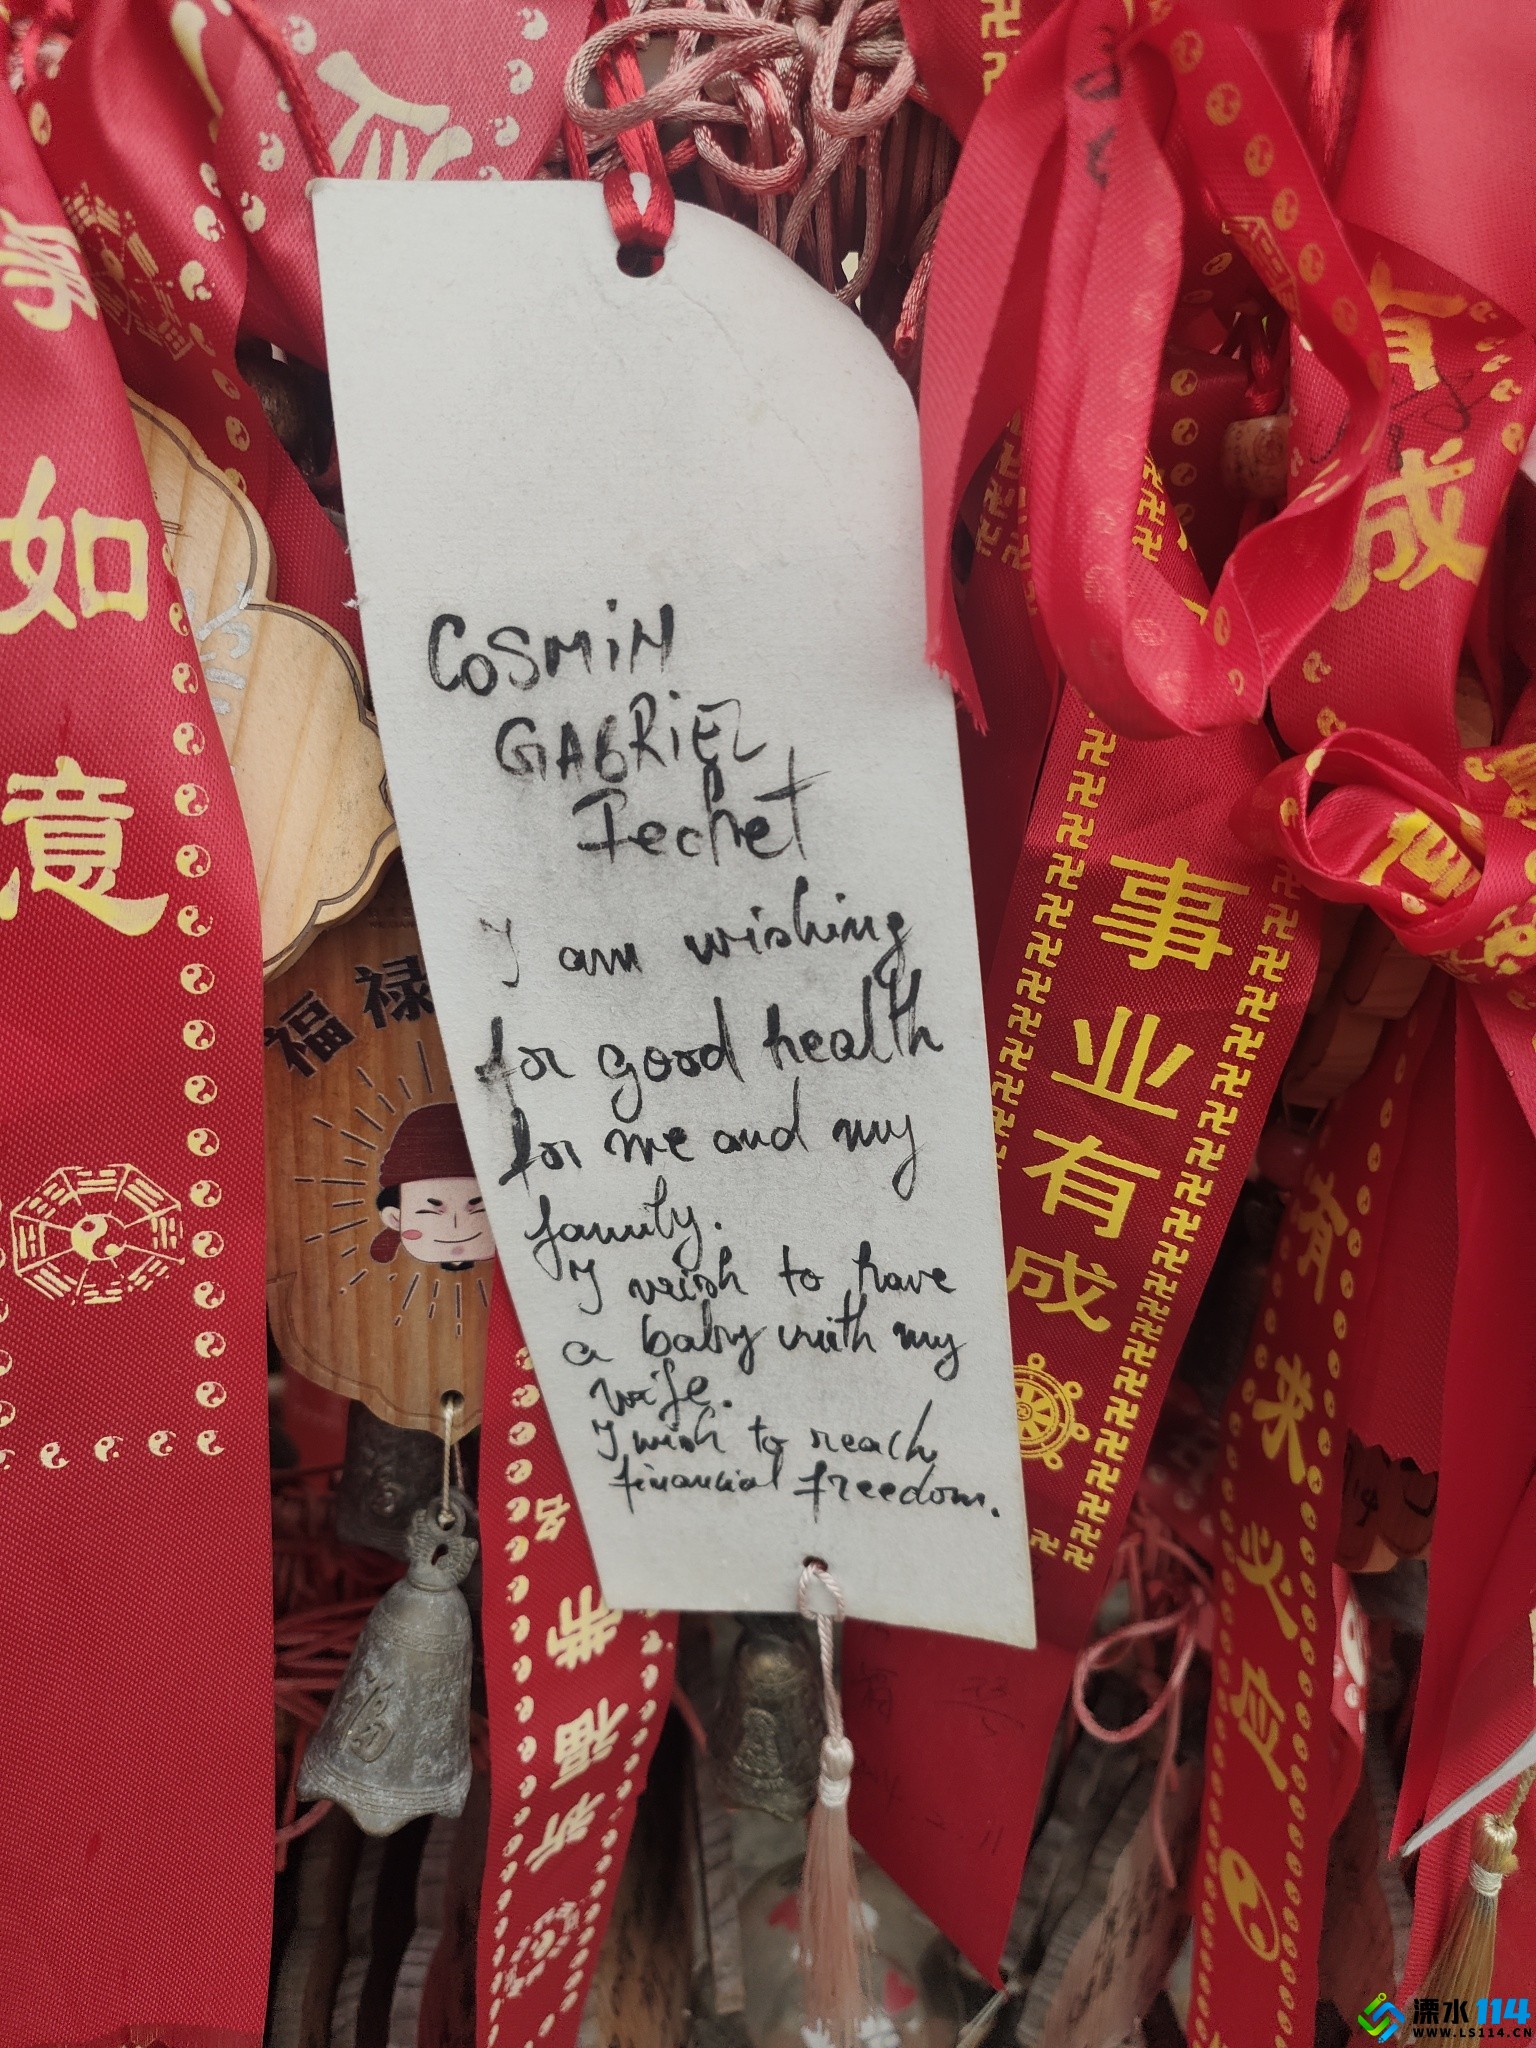 如
意
福 禄
COSMIN
GABRIEL
I am wishing
for good health
for me and my
family.
I wish to have
a baby with my
wife.
I wish to reach
financial freedom.
事
业
有
成
有
成
有
来
必
应
带
福
福
溧水114
WWW.LS114.CN